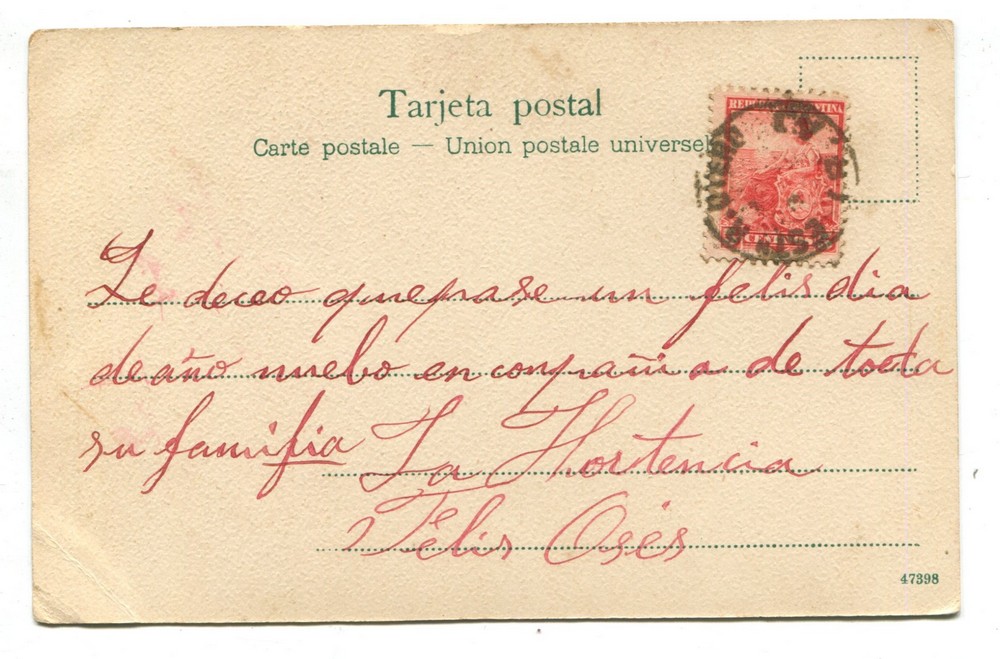 Tarjeta postal
Carte postale — Union postale universel
REPUB ENTINA
CENT
Le deceo que pase un felis dia
de año nuebo en conpañia de toda
su familia La Hortencia
Félis Osés
47398